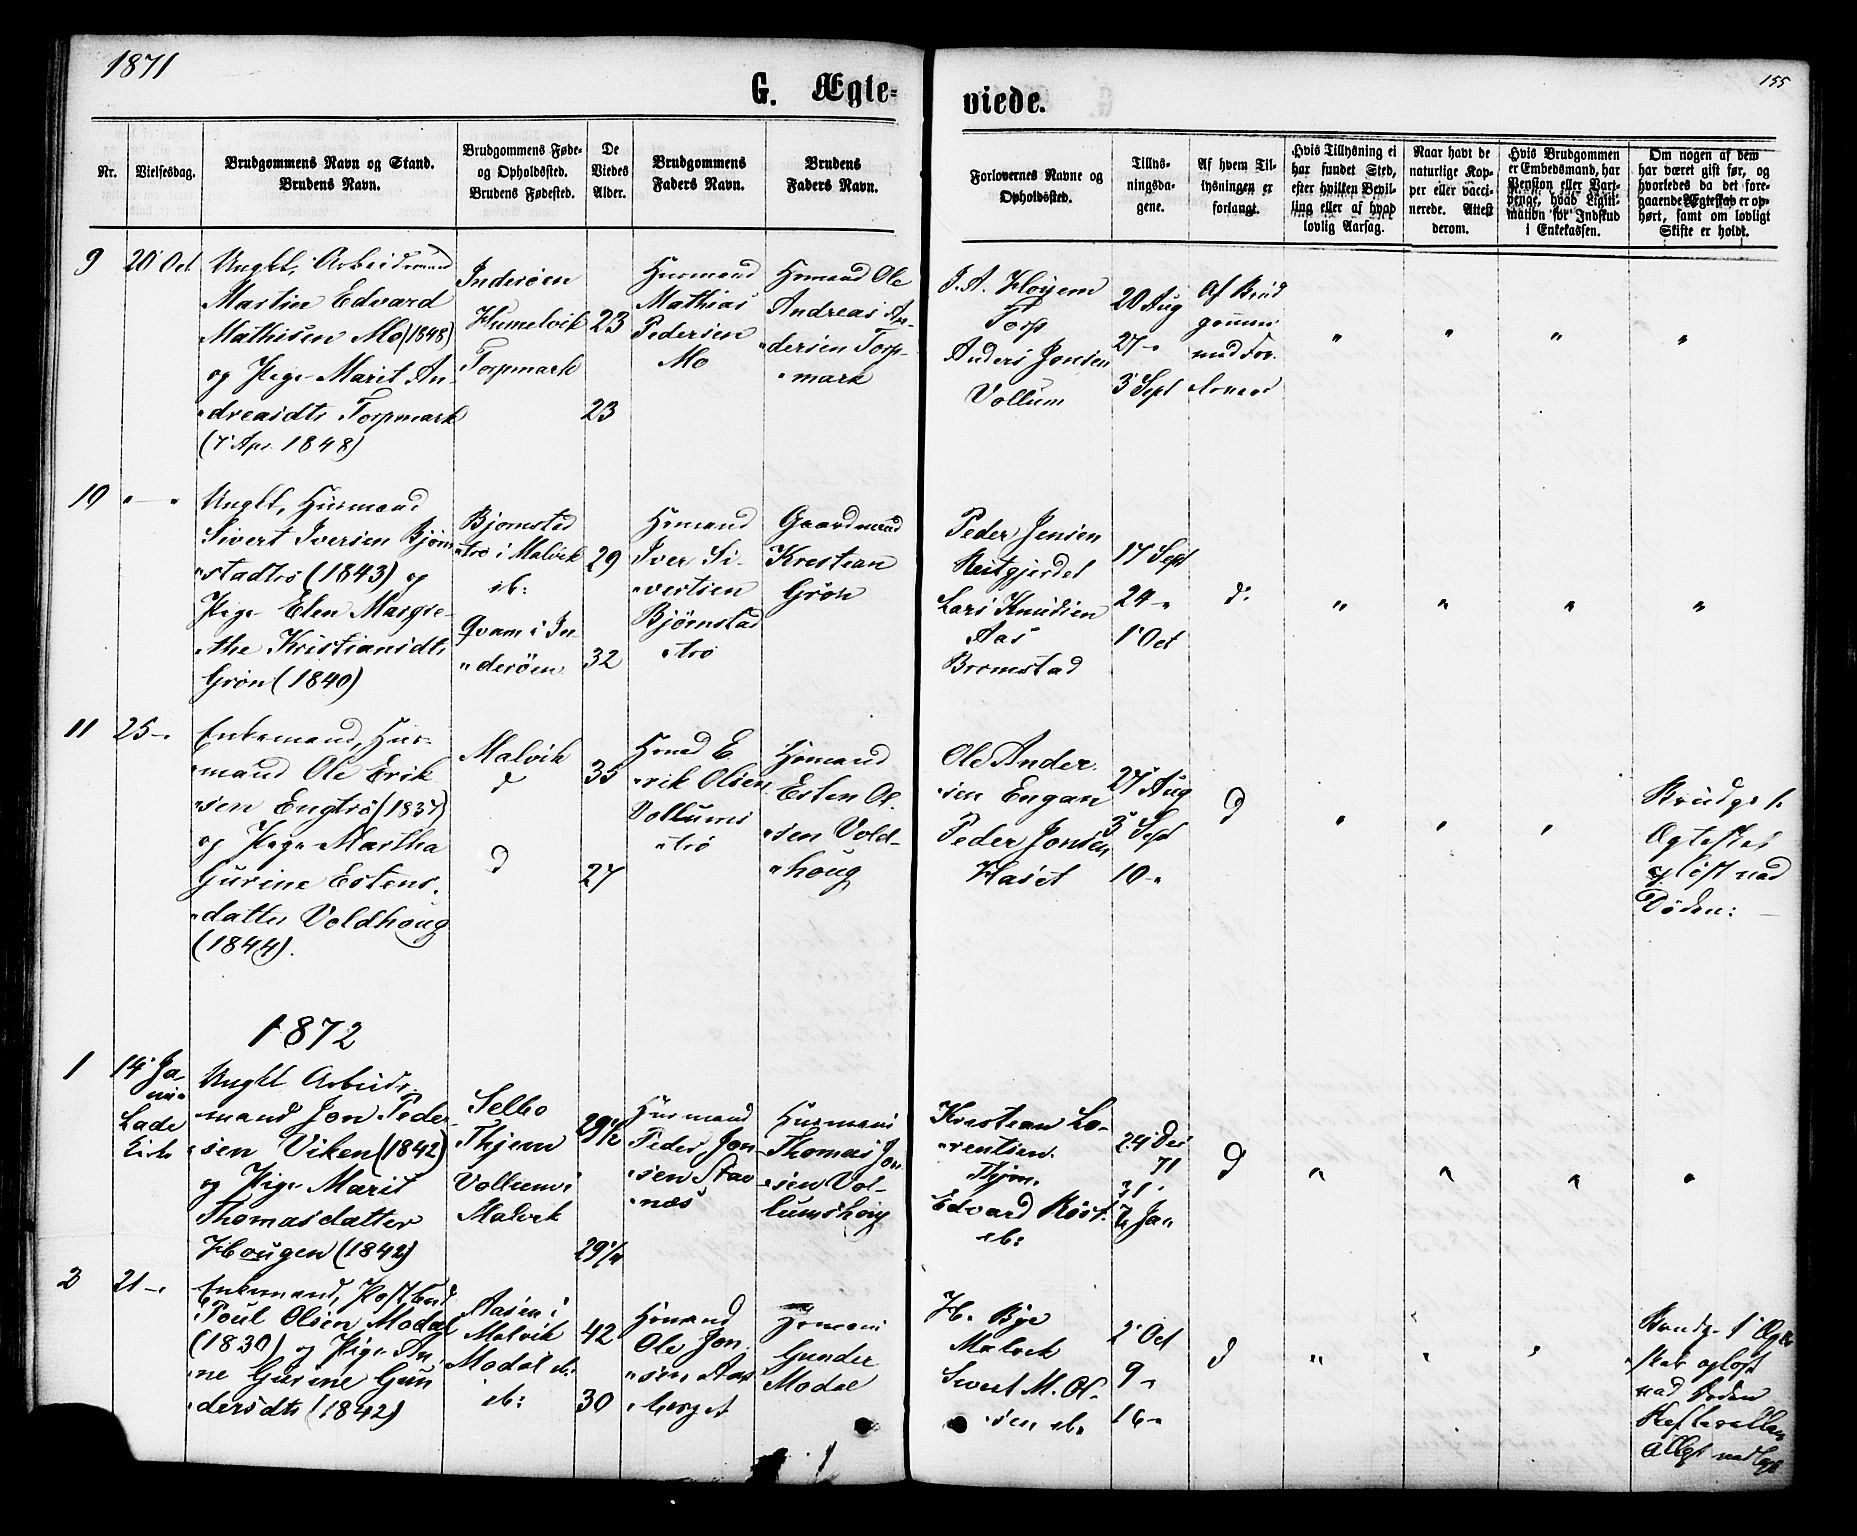 1871
155
G. Ægte=
viede.
Nr.
Vielsesdag.
Brudgommens Navn og Stand.
Brudens Navn.
Brudgommens Føde-
og Opholdssted.
Brudens Fødested.
De
Viedes
Alder.
Brudgommens
Faders Navn.
Brudens
Faders Navn.
Forlovernes Navne og
Opholdssted.
Tillys-
ningsda-
gene.
Af hvem Til-
lysningen er
forlangt.
Hvis Tillysning ei
har fundet Sted,
efter hvilken Bevil-
ling eller af hvad
lovlig Aarsag.
Naar havt de
naturlige Kop-
per eller vacci-
nerede. Attest
derom.
Hvis Brudgommen
er Embedsmand, har
Pension eller Vart-
penge, hvad Ligiti-
mation for Indskud
i Enkekassen.
Om nogen af dem
har været gift før, og
hvorledes da det fore-
gaaende Ægteskab er op-
hørt, samt om lovligt
Skifte er holdt.
9
20 Oct
Ungkl, Arbeidsmand
Martin Edvard
Mathisen Mo (1848)
og Pige Marit An-
dreasdtr Torpmark
(7 Apr. 1848)
Inderøen
Humelvik
Torpmark
23
23
Husmand
Mathias
Pedersen
Mo
Hsmand Ole
Andreas An-
dersen Torp-
mark
J. A. Hojem
Torp
Anders Jonsen
Vollum
20 Aug
27 -
3 Sept
Af Brud
gommen
med For
lovered
" " " "
10
" — "
Ungkl, Husmand
Sivert Iversen Bjørn
stadtrø (1843) og
Pige Elen Margre-
the Kristiansdtr
Grøn (1840)
Bjornstad
trø i Malvik
ib:
Qvam i In
derøen
29
32
Hsmand
Iver Si-
vertsen
Bjørnstad
trø
Gaardmand
Krestian
Grøn
Peder Jensen
Reitgjerdet
Lars Knudsen
Aas
Bromstad
17 Sept
24 -
1 Oct
d.
" " " "
11
25 -
Enkemand, Hus-
mand Ole Erik
sen Engtrø (1837)
og Pige Martha
Gurine Estens.
datter Voldhoug
(1844).
Malvik
d
d
35
27
Hsmd E
rik Olsen
Vollums
trø
Hsmand
Esten Ol.
sen Vold-
houg
Ole Ander.
sen Engan
Peder Jonsen
Haset
27 Aug
3 Sept
10 -
d
" " "
Brudgs 1.
Ægteskab
opløst ved
Døden:
1872
1
14 Ja
nu.
Lade
Kirke
Ungkl Arbeids.
mand Jon Peder-
sen Viken (1842)
og Pige Marit
Thomasdatter
Hougen (1842)
Selbo
Thjem
Vollum i
Malvik
29½
29¼
Husmand
Peder Jon-
sen Stav
næs
Husmand
Thomas Jon
sen Vol-
lumshoug
Krestian Lo-
rentsen.
Edvard
ib:
24 Dec
71
31 -
7 Jan
d
" " " "
2
21 -
Enkemand, Postbud
Poul Olsen Modal
(1830) og Pige An,
ne Gurine Gun
dersdtr (1842)
Aasen i
Malvik
Modal ib.
ib:
42
30
Hsmand
Ole Jon,
sen Aas
berget
Hsmand
Gunder
Modal
H. Bye
Malvik
Sivert M. Ol-
sen ib.
2 Oct
9 -
16 -
d
" " "
Brudgs 1 Ægte
skab opløst
ved Døden